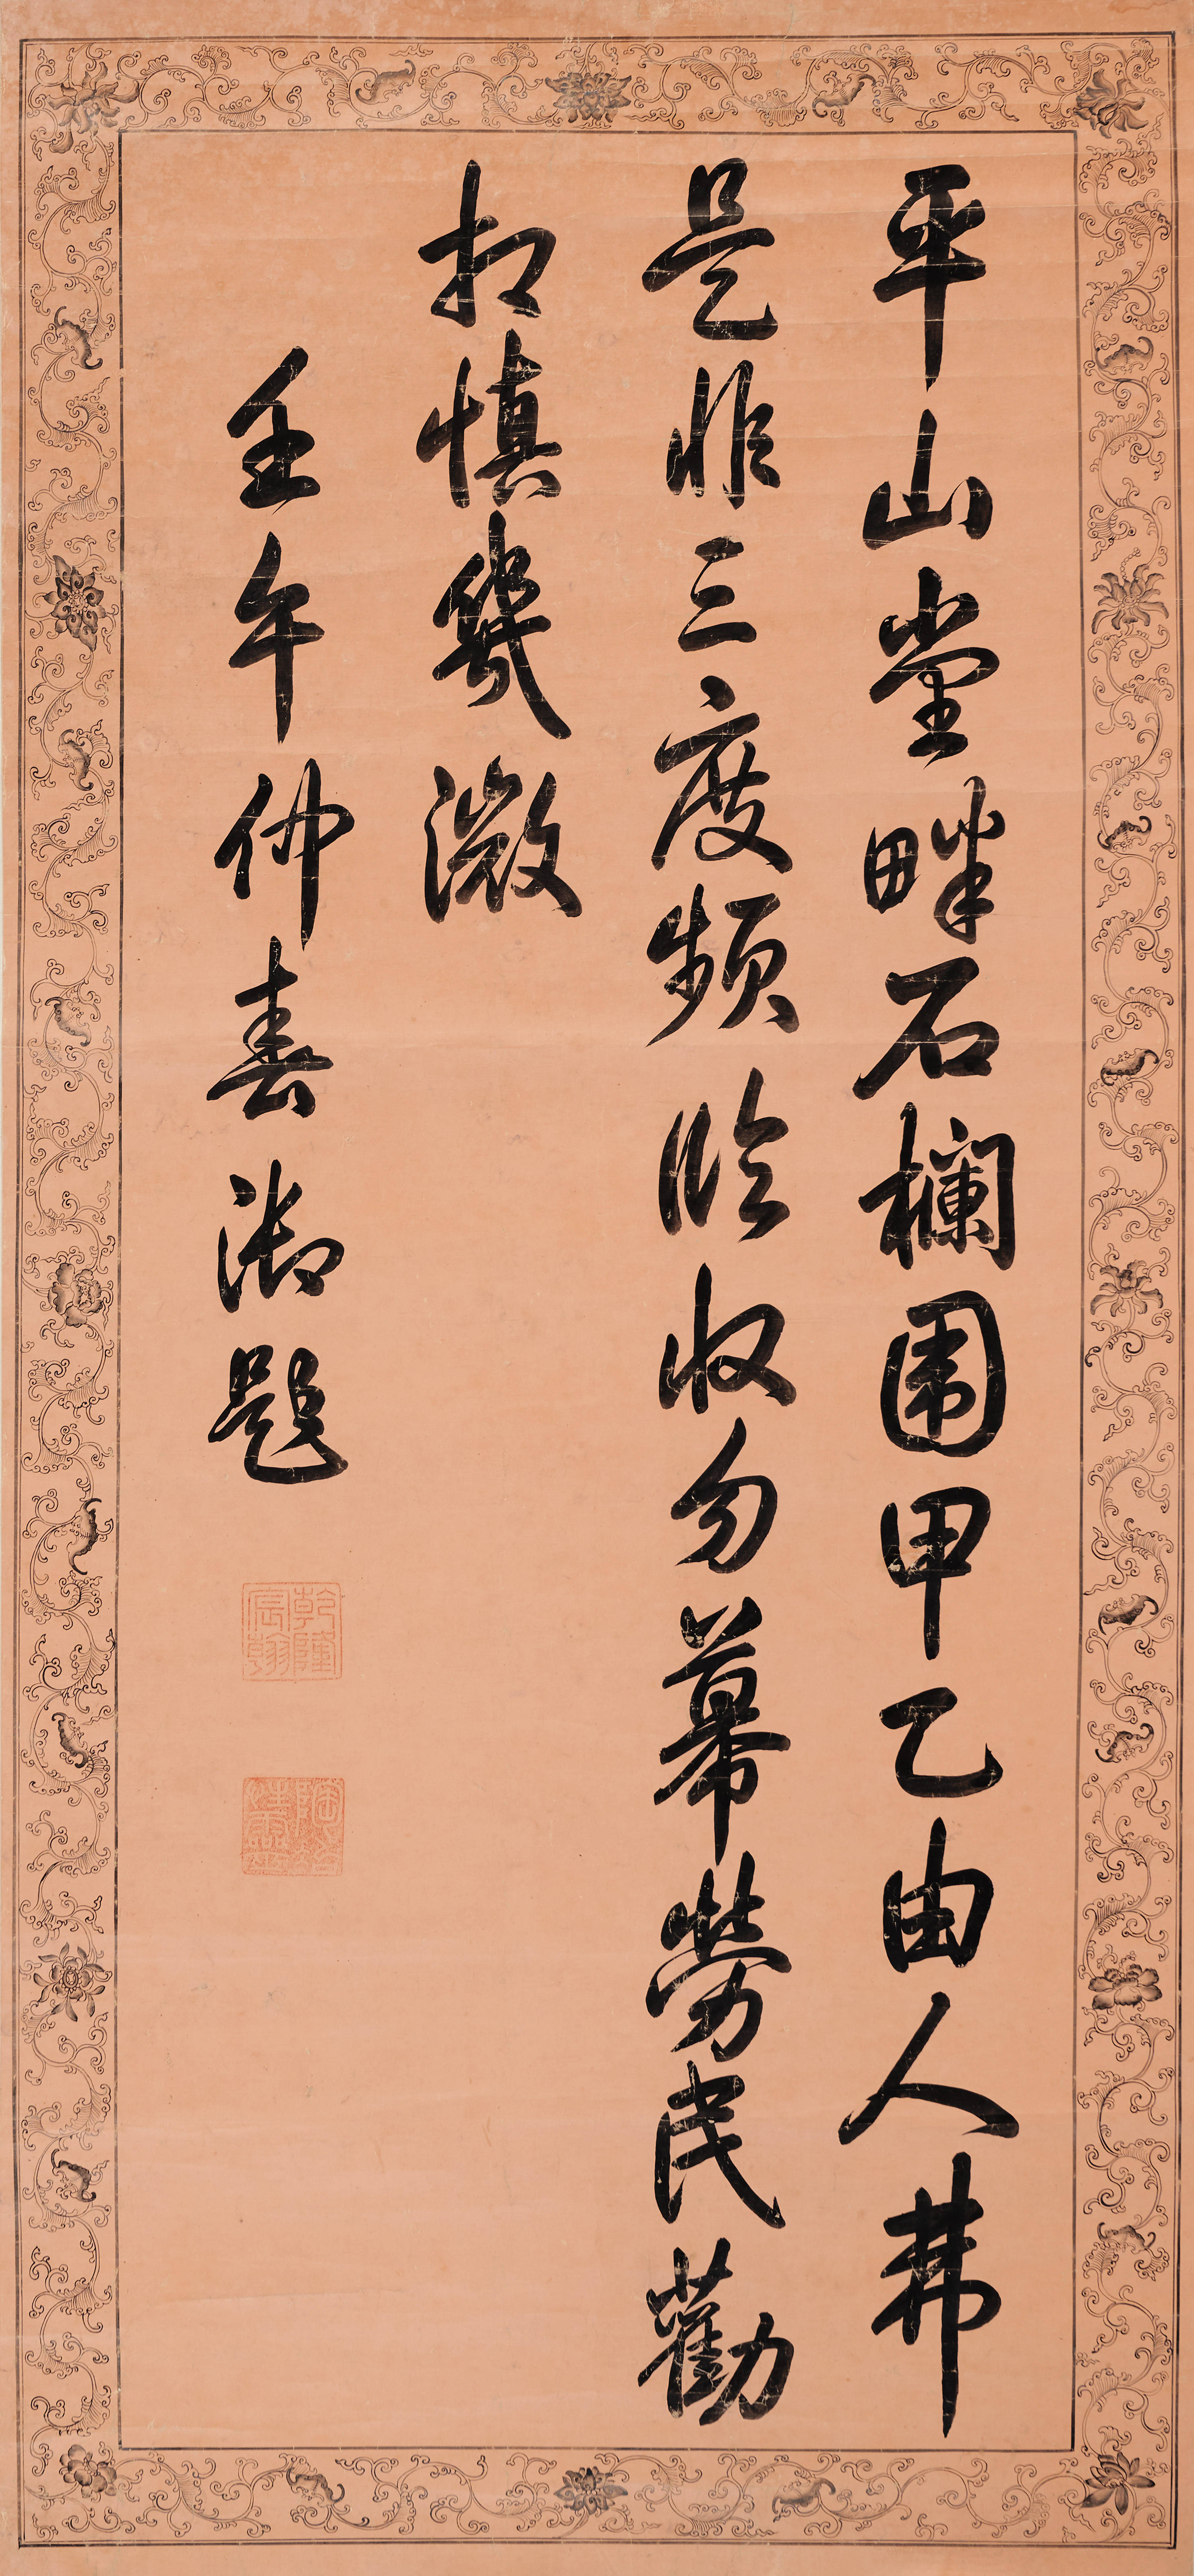 平山堂畔石欄圍甲乙由人弗
是非三度頻臨收勿幕勞民勸
相慎幾微
壬午仲春御題
乾隆宸翰